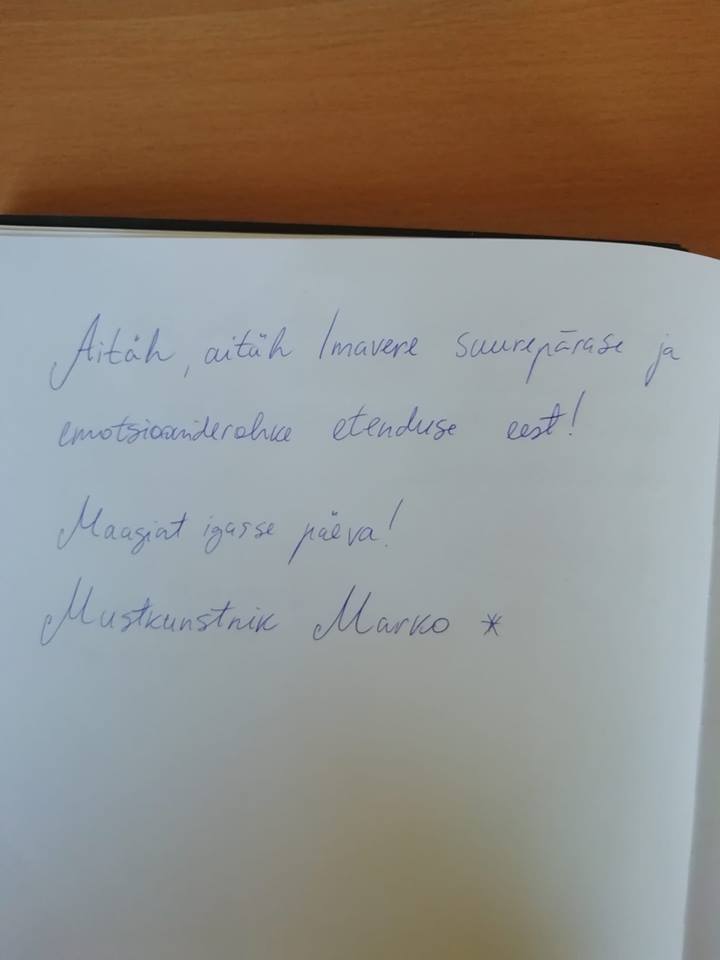 Aitäh, aitäh Imavere suurepärase ja
emotsiooniderohke etenduse eest!
Maagiat igasse päeva!
Mustkunstnik Marko *